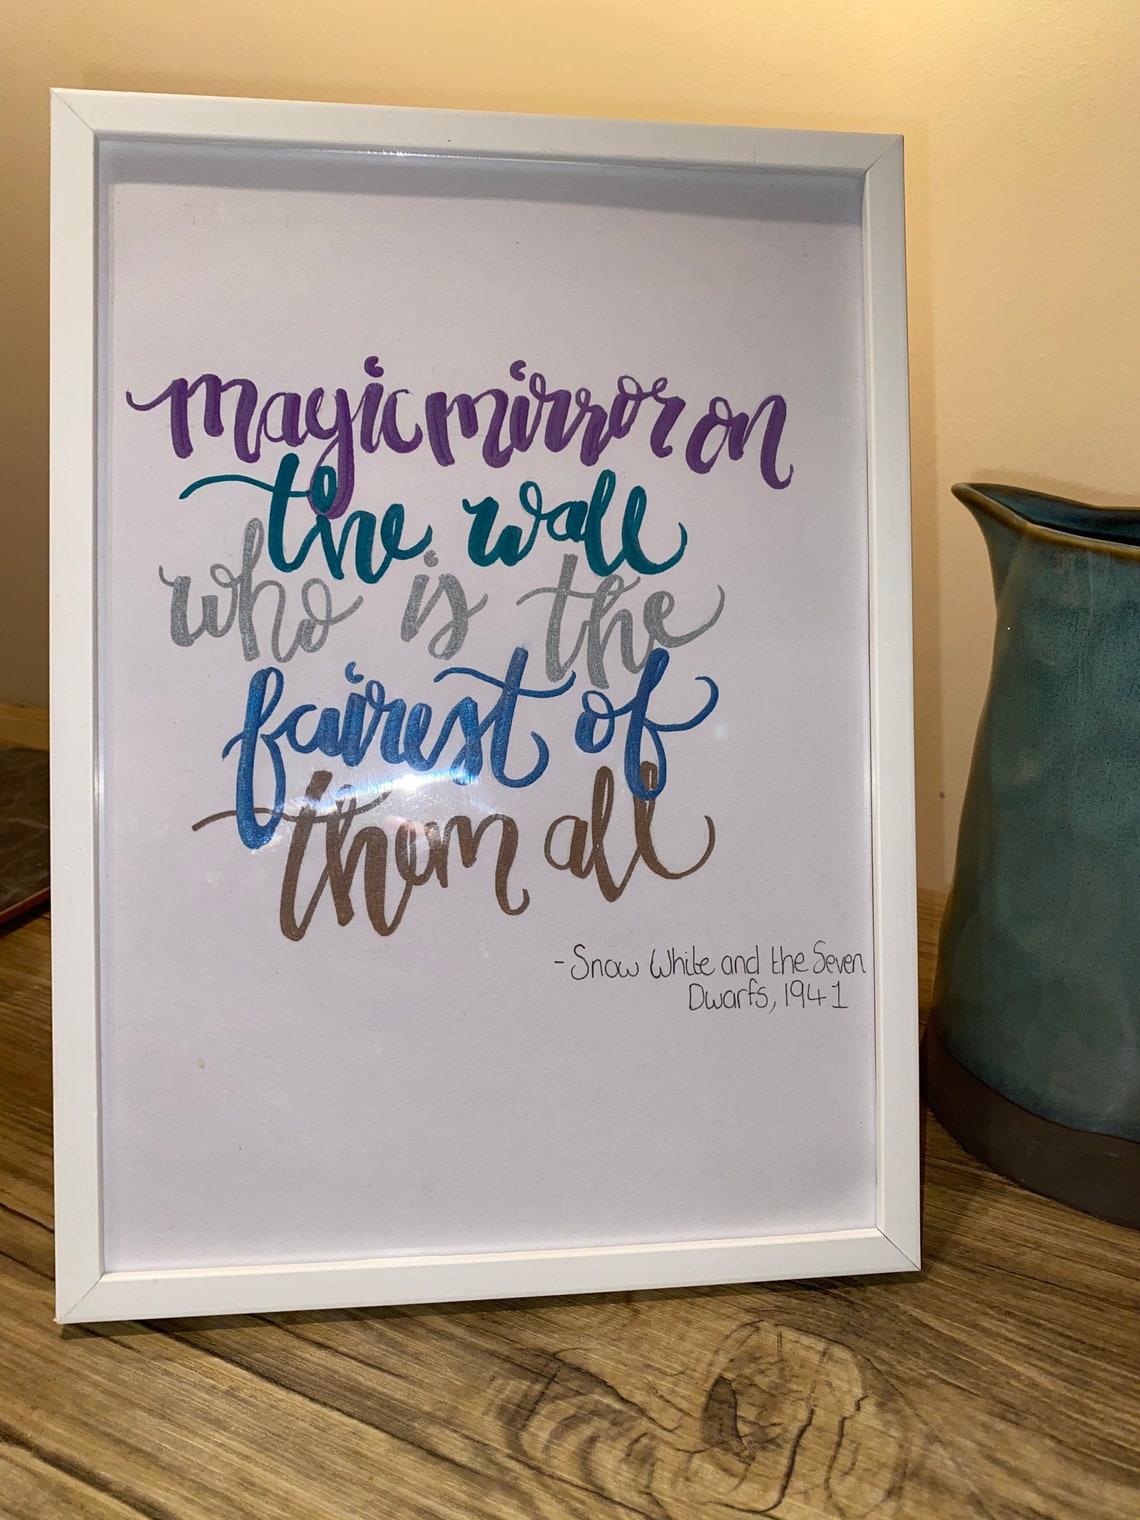 magic mirror on
the wall
who is the
fairest of
them all
- Snow White and the Seven
Dwarfs, 1941